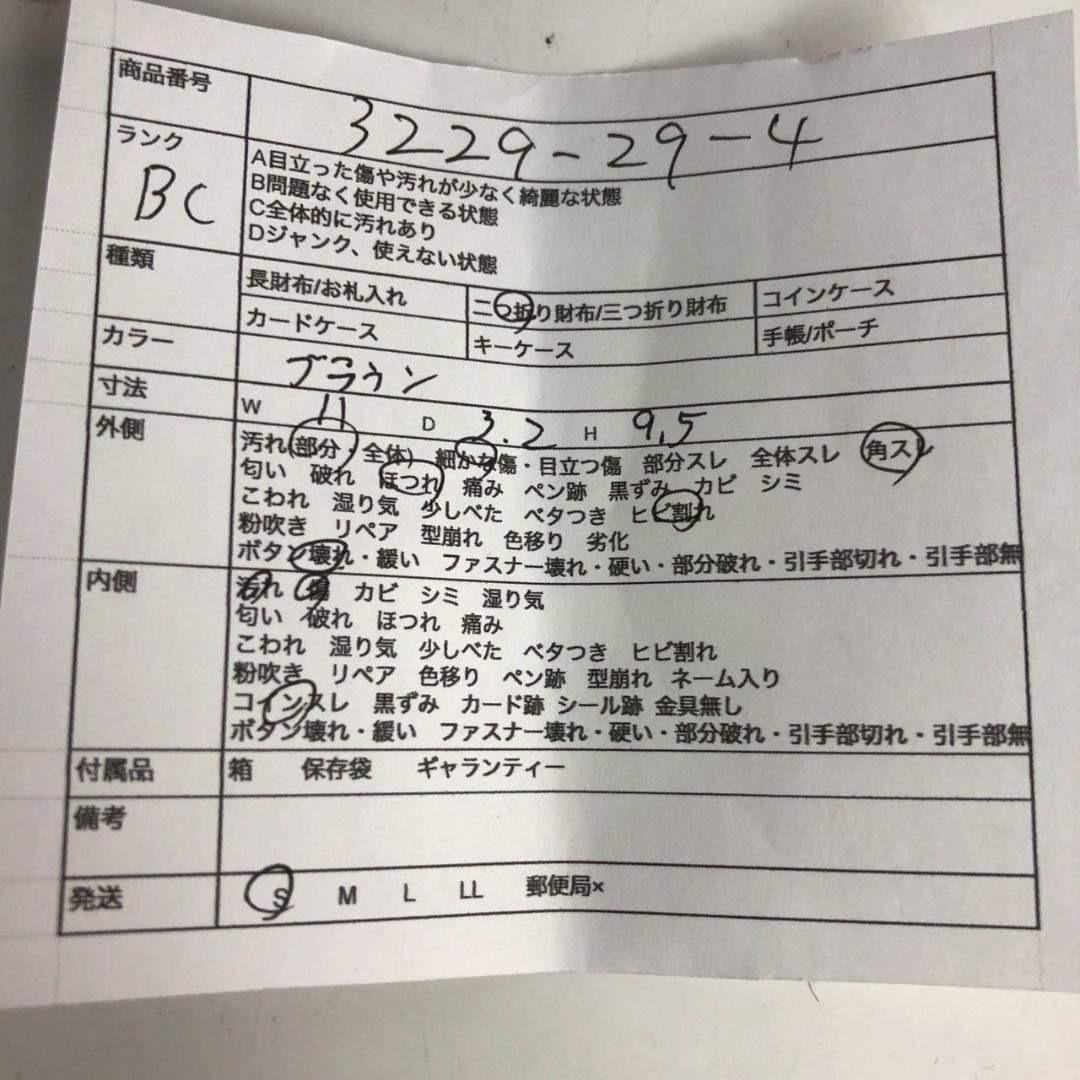 商品番号 3229-29-4
ランク BC
A目立った傷や汚れが少なく綺麗な状態
B問題なく使用できる状態
C全体的に汚れあり
Dジャンク、使えない状態
種類
長財布/お札入れ 二つ折り財布/三つ折り財布 コインケース
カードケース キーケース 手帳/ポーチ
カラー ブラウン
寸法 W 11 D 3.2 H 9.5
外側
汚れ(部分・全体) 細かな傷・目立つ傷 部分スレ 全体スレ 角スレ
匂い 破れ ほつれ 痛み ペン跡 黒ずみ カビ シミ
こわれ 湿り気 少しべた ベタつき ヒビ割れ
粉吹き リペア 型崩れ 色移り 劣化
ボタン壊れ・緩い ファスナー壊れ・硬い・部分破れ・引手部切れ・引手部無
内側
汚れ 傷 カビ シミ 湿り気
匂い 破れ ほつれ 痛み
こわれ 湿り気 少しべた ベタつき ヒビ割れ
粉吹き リペア 色移り ペン跡 型崩れ ネーム入り
コインスレ 黒ずみ カード跡 シール跡 金具無し
ボタン壊れ・緩い ファスナー壊れ・硬い・部分破れ・引手部切れ・引手部無
付属品 箱 保存袋 ギャランティー
備考
発送 S M L LL 郵便局×